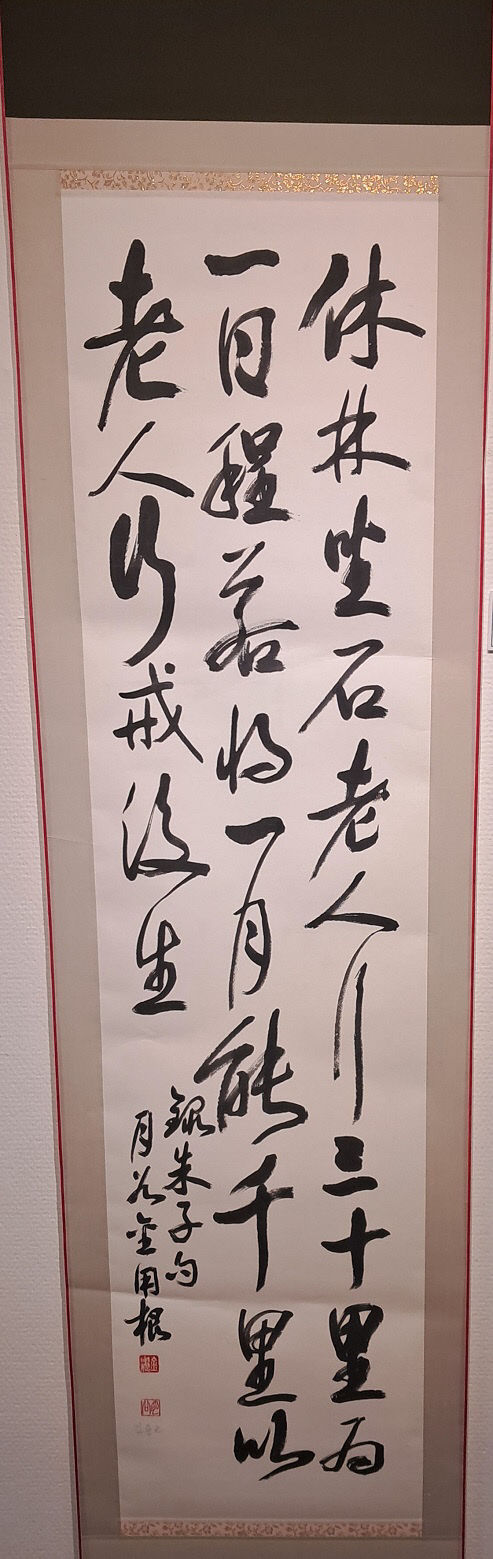 休林坐石老人行三十里為
一日程若將一月能千里以
老人行戒後生
錄朱子句
月谷金用根